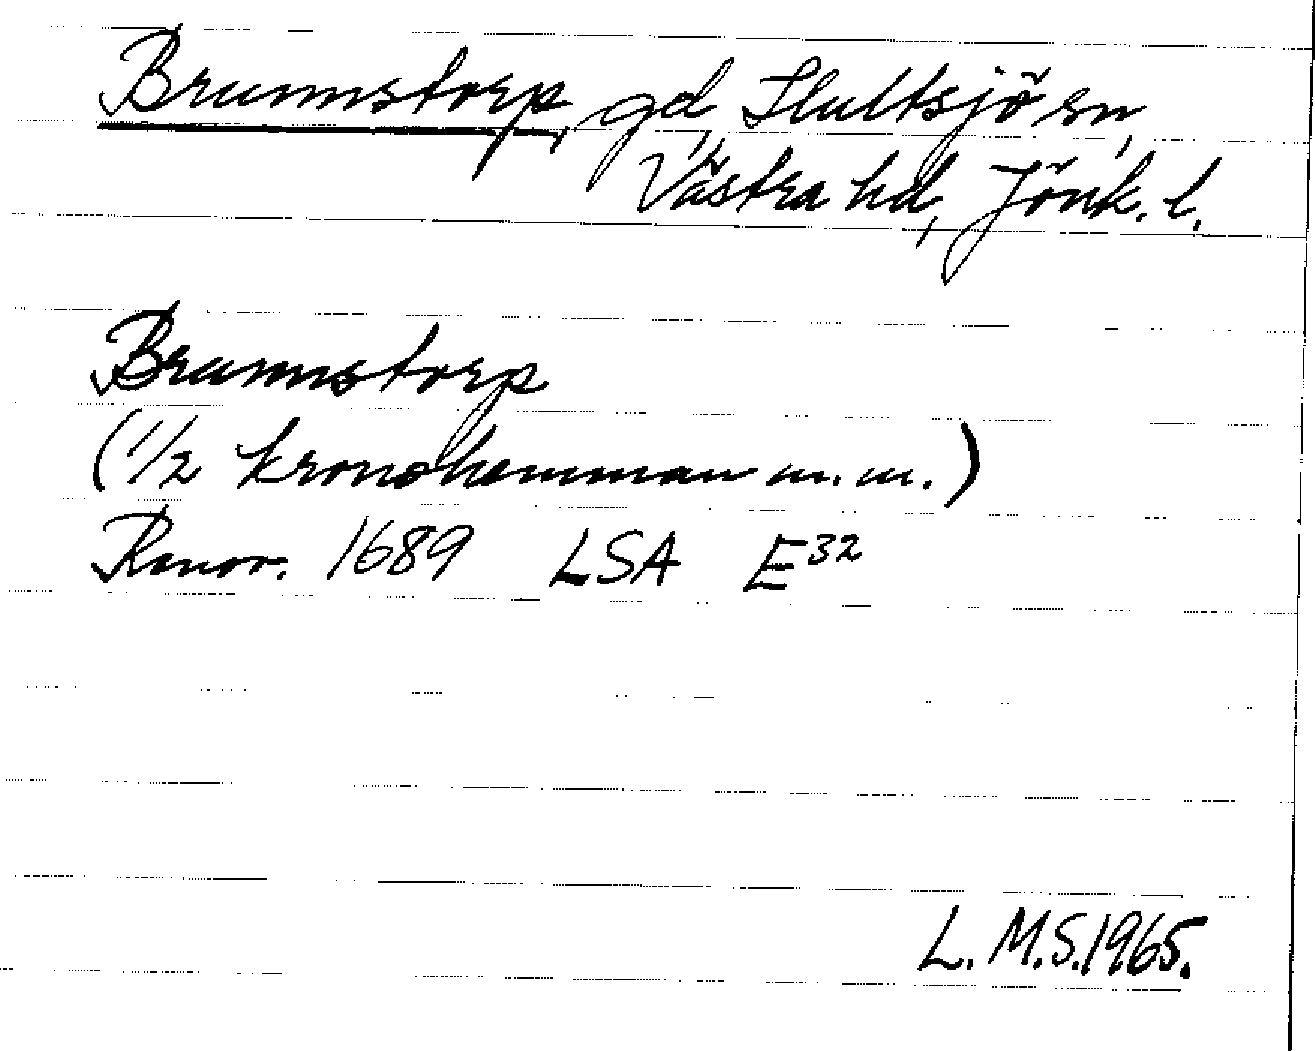 Brunnstorp, gd, Hultsjö sn,
Västra hd, Jönk. l.
Brunnstorp
(1/2 kronohemman m.m.)
Renov. 1689 LSA E32
L. M.S. 1965.